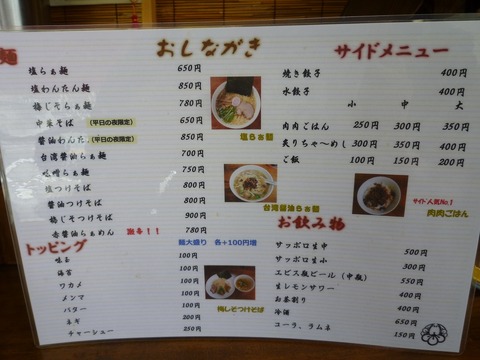 麺
おしながき
塩らぁ麺 650円
塩わんたん麺 850円
梅じそらぁ麺 780円
中華そば (平日の夜限定) 650円
醤油わんたん (平日の夜限定) 850円
台湾醤油らぁ麺 700円
味噌らぁ麺 750円
塩つけそば 800円
醤油つけそば 800円
梅じそつけそば 900円
赤醤油らぁめん 激辛!! 780円
トッピング 麺大盛り 各+100円増
味玉 100円
海苔 100円
ワカメ 100円
メンマ 100円
バター 100円
ネギ 200円
チャーシュー 250円
塩らぁ麺
台湾醤油らぁ麺
梅しそつけそば
サイドメニュー
焼き餃子 400円
水餃子 400円
小 中 大
肉肉ごはん 250円 300円 350円
炙りちゃ~めし 300円 350円 400円
ご飯 100円 150円 200円
サイド人気No.1
肉肉ごはん
お飲み物
サッポロ生中 500円
サッポロ生小 300円
エビス瓶ビール(中瓶) 550円
生レモンサワー 400円
お茶割り 400円
冷酒 650円
コーラ、ラムネ 150円